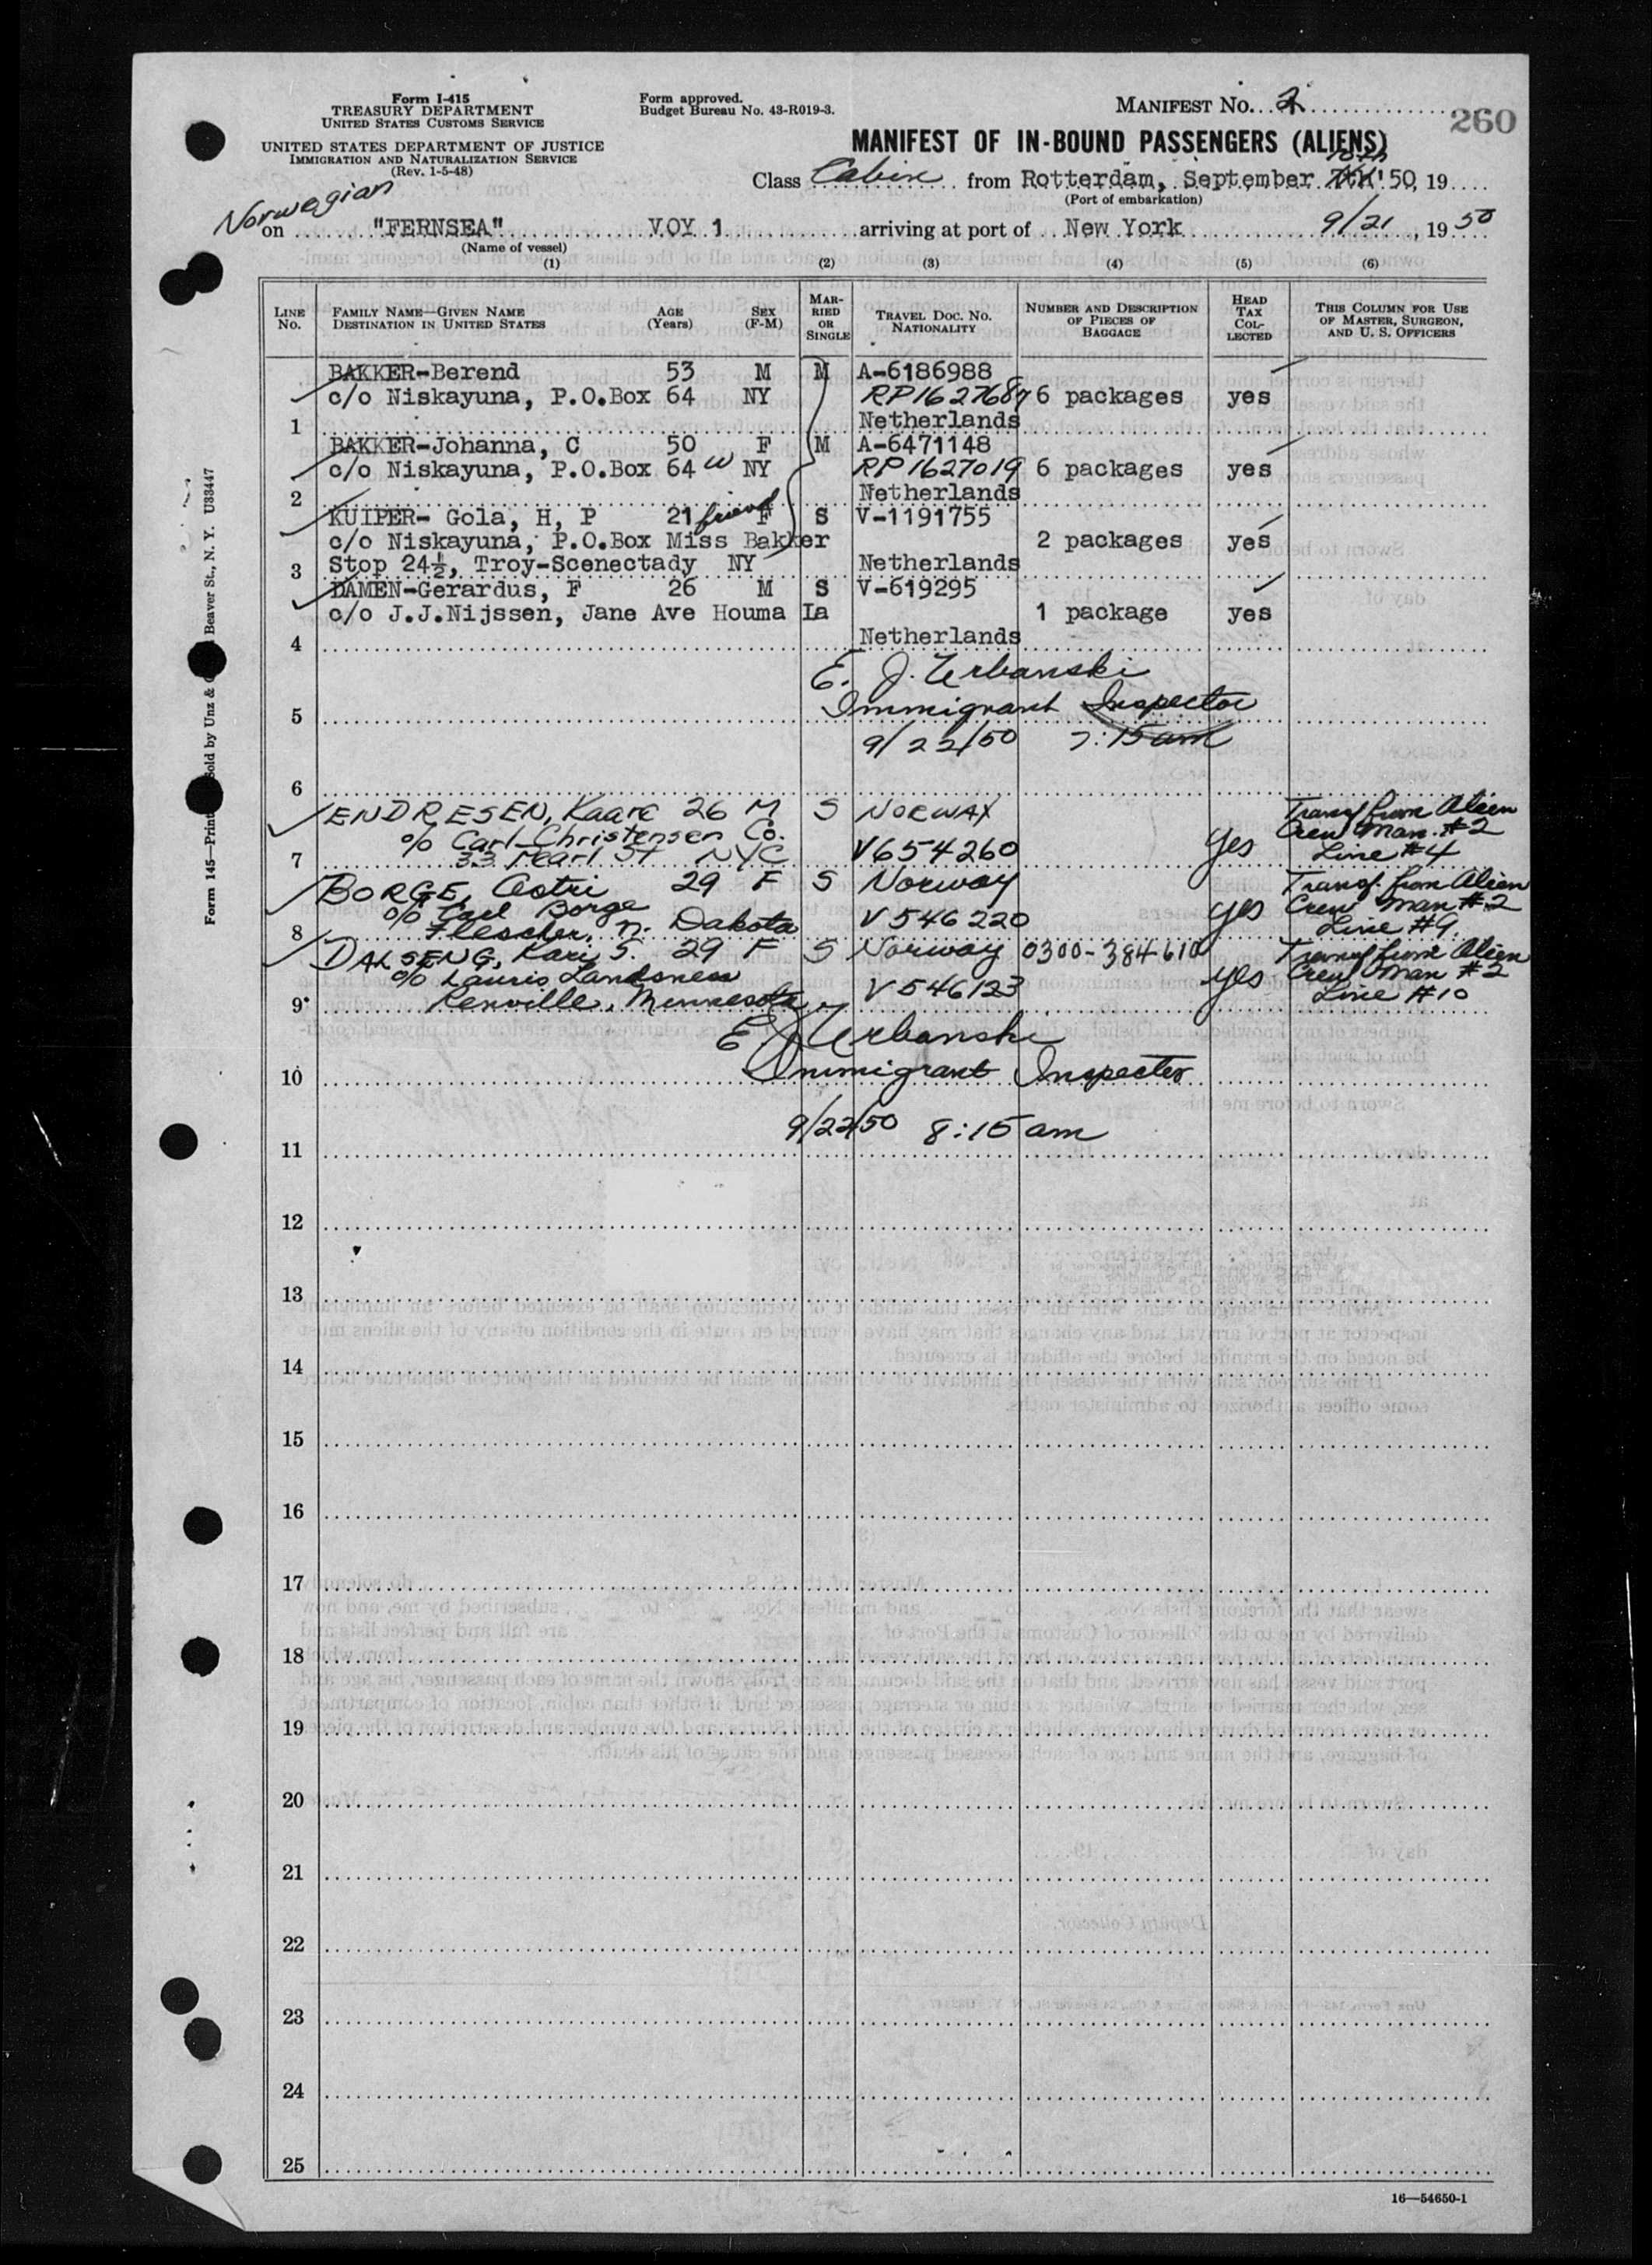 Form I-415
TREASURY DEPARTMENT
UNITED STATES CUSTOMS SERVICE
UNITED STATES DEPARTMENT OF JUSTICE
IMMIGRATION AND NATURALIZATION SERVICE
(Rev. 1-5-48)
Form approved.
Budget Bureau No. 43-R019-3.
MANIFEST NO. 2
260
MANIFEST OF IN-BOUND PASSENGERS (ALIENS)
10th
Class Cabin from Rotterdam, September 7th '50, 19
(Port of embarkation)
Norwegian
on "FERNSEA" VOY 1 arriving at port of New York 9/21, 1950
(Name of vessel)
(1) (2) (3) (4) (5) (6)
LINE NO.
FAMILY NAME—GIVEN NAME
DESTINATION IN UNITED STATES
AGE (Years)
SEX (F-M)
MARRIED OR SINGLE
TRAVEL DOC. NO.
NATIONALITY
NUMBER AND DESCRIPTION OF PIECES OF BAGGAGE
HEAD TAX COLLECTED
THIS COLUMN FOR USE OF MASTER, SURGEON, AND U. S. OFFICERS
BAKKER-Berend 53 M M A-6186988
c/o Niskayuna, P.O.Box 64 NY RP1627687 6 packages yes
1 Netherlands
BAKKER-Johanna, C 50 F M A-6471148
c/o Niskayuna, P.O.Box 64 w NY RP1627019 6 packages yes
2 Netherlands
KUIPER- Gola, H, P 21 friend F S V-1191755
c/o Niskayuna, P.O.Box Miss Bakker 2 packages yes
3 Stop 24½, Troy-Scenectady NY Netherlands
DAMEN-Gerardus, F 26 M S V-619295
c/o J.J.Nijssen, Jane Ave Houma Ia 1 package yes
4 Netherlands
E. J. Urbanski
5 Immigrant Inspector
9/22/50 7:15 am
6
ENDRESEN, Kaare 26 M S NORWAY Transf from Alien
c/o Carl Christensen Co. Crew Man. #2
7 33 Pearl St NYC V654260 yes Line #4
BORGE, Astri 29 F S Norway Transf. from Alien
c/o Carl Borge yes Crew Man #2
8 Flescher, N. Dakota V546220 Line #9.
DALSENG, Kari S. 29 F S Norway 0300-384610 Transf from Alien
c/o Lauris Landsness yes Crew Man #2
9 Renville, Minnesota V546123 Line #10
E J Urbanski
10 Immigrant Inspector
9/22/50 8:15 am
11
12
13
14
15
16
17
18
19
20
21
22
23
24
25
16—54650-1
Beaver St., N. Y. U33447
Form 145—Print Sold by Unz &